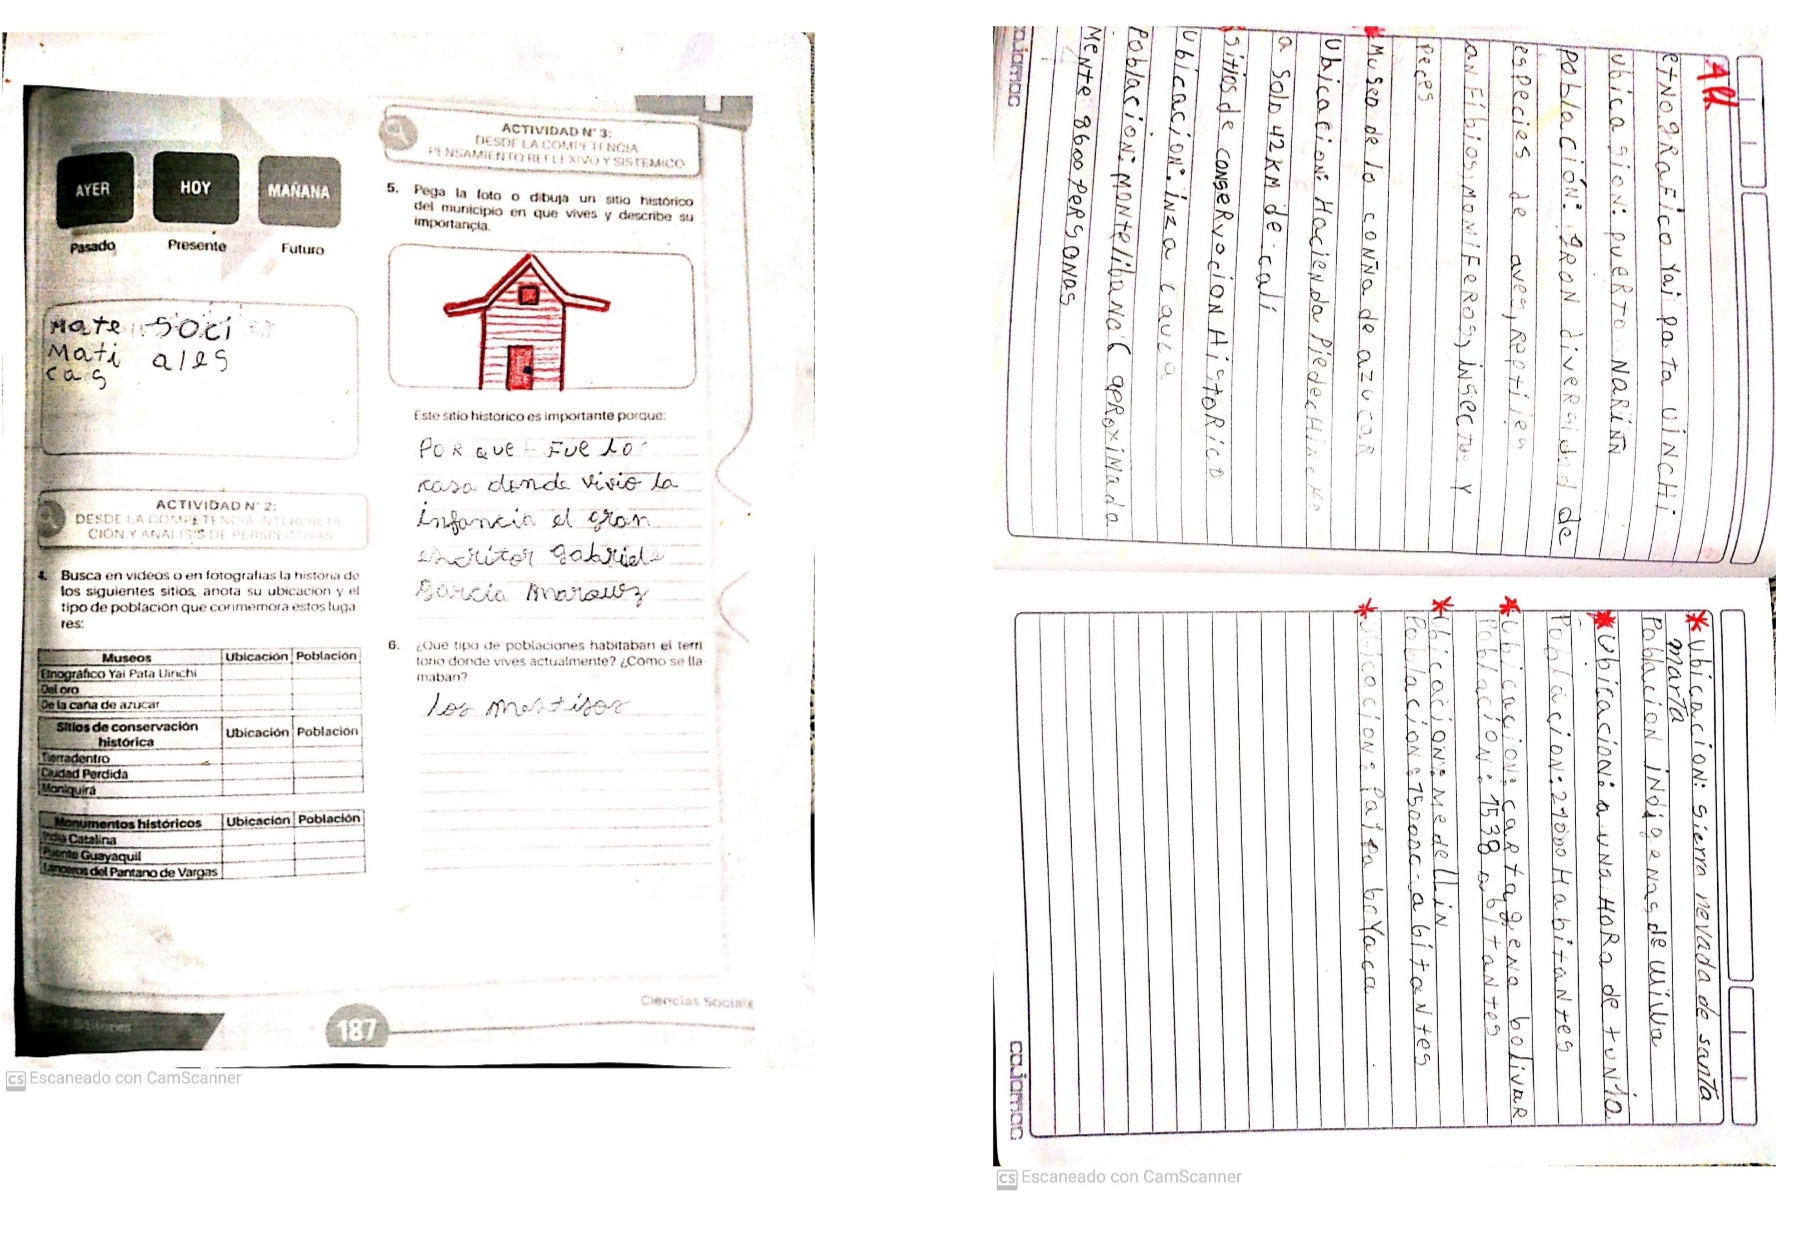 AYER
HOY
MAÑANA
Pasado
Presente
Futuro
Mate soci
Mati ales
cas
ACTIVIDAD N° 2:
DESDE LA COMPETENCIA INTERPRETA
CIÓN Y ANÁLISIS DE PERSPECTIVAS
4. Busca en videos o en fotografías la historia de
los siguientes sitios, anota su ubicación y el
tipo de población que conmemora estos luga
res:
Museos Ubicación Población
Etnográfico Yai Pata Uinchi
Del oro
De la caña de azúcar
Sitios de conservación
histórica Ubicación Población
Tierradentro
Ciudad Perdida
Moniquirá
Monumentos históricos Ubicación Población
India Catalina
Puente Guayaquil
Lanceros del Pantano de Vargas
ACTIVIDAD N° 3:
DESDE LA COMPETENCIA
PENSAMIENTO REFLEXIVO Y SISTÉMICO
5. Pega la foto o dibuja un sitio histórico
del municipio en que vives y describe su
importancia.
Este sitio histórico es importante porque:
PORQUE FUE LO
casa donde vivio la
infancia el gran
escritor gabriel
garcía marquez
6. ¿Qué tipo de poblaciones habitaban el terri
torio donde vives actualmente? ¿Cómo se lla
maban?
los mestisos
187
Ciencias Sociale
Editores
CS Escaneado con CamScanner
All
etnografico Yaj pata Uinchi
ubicasion: puerto Nariñn
población: gran diversidad de
especies de aves, reptiles
anfibios, moniferos, insectos y
peces
*Museo de la coñña de azucar
Ubicacion: Hacienda Piedechinche
a solo 42 KM de cali
sitios de conservocion Historico
Ubicacion: inza cauca
Poblacion: Montelibano( aproximada
Mente 8600 personas
cajamac
*Ubicacion: sierra nevada de santa
marta
Poblacion indigenas de wiwa
*Ubicacion: a una hora de tunja
Poblacion: 21000 Habitantes
*Ubicacion: cartageno bolivar
Poblacion: 1538 abitantes
*Ubicacion: Medellin
Poblacion: 150000 abitantes
*Ubicacion: Paipa boyaca
cajamac
CS Escaneado con CamScanner